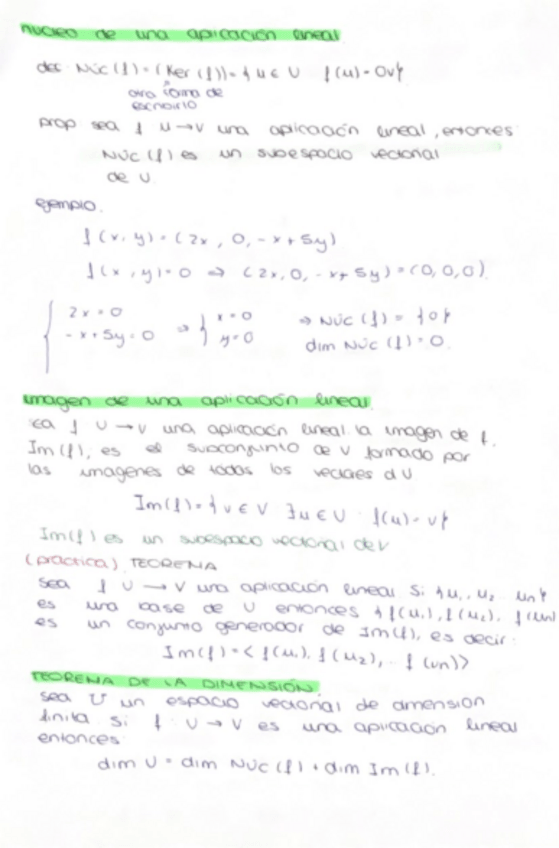 nucleo de una aplicación lineal
def: Núc(f)=(Ker(f))={u∈U f(u)=0v}
otra forma de
escribirlo
prop sea f U→V una aplicación lineal, entonces
Núc(f) es un subespacio vectorial
de U.
ejemplo.
f(x,y)=(2x, 0, -x+5y)
f(x,y)=0 ⇒ (2x,0,-x+5y)=(0,0,0).
{ 2x=0 ⇒ { x=0 ⇒ Núc(f)={0}
-x+5y=0 y=0 dim Núc(f)=0.
imagen de una aplicación lineal.
ea f U→V una aplicación lineal. la imagen de f.
Im(f), es el subconjunto de V formado por
las imagenes de todos los vectores d U
Im(f)={v∈V ∃u∈U f(u)=v}
Im(f) es un subespacio vectorial de V
(práctica) TEOREMA
sea f U→V una aplicación lineal si {u1, u2 ... un}
es una base de U entonces {f(u1), f(u2). f(un)
es un conjunto generador de Im(f), es decir:
Im(f)=<f(u1), f(u2),... f(un)>
TEOREMA DE LA DIMENSIÓN.
sea U un espacio vectorial de dimensión
finita. si f: U→V es una aplicación lineal
entonces:
dim U = dim Núc(f)+dim Im(f).